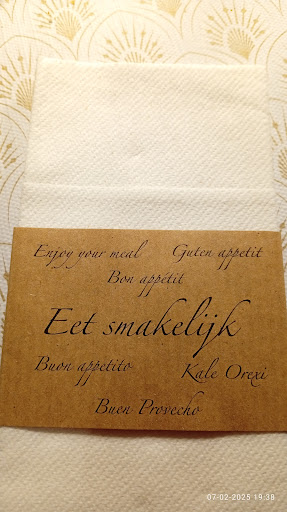 Enjoy your meal
Guten appetit
Bon appétit
Eet smakelijk
Buon appetito
Kale Orexi
Buen Provecho
07-02-2025 19:38